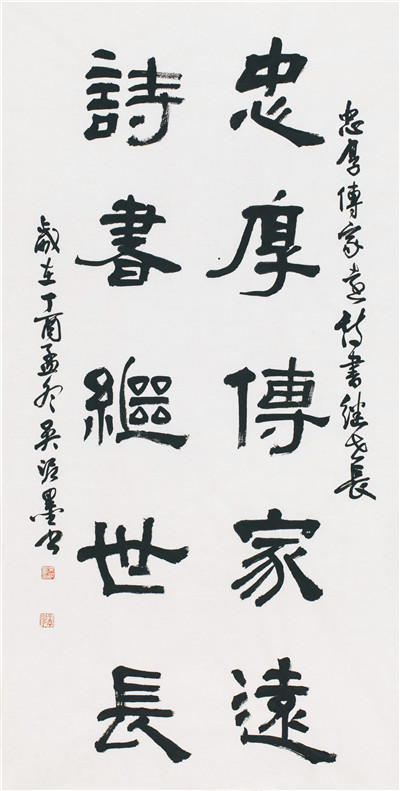 忠厚傳家遠詩書继世長
忠厚傳家遠
詩書繼世長
歲在丁酉孟冬吴墨书